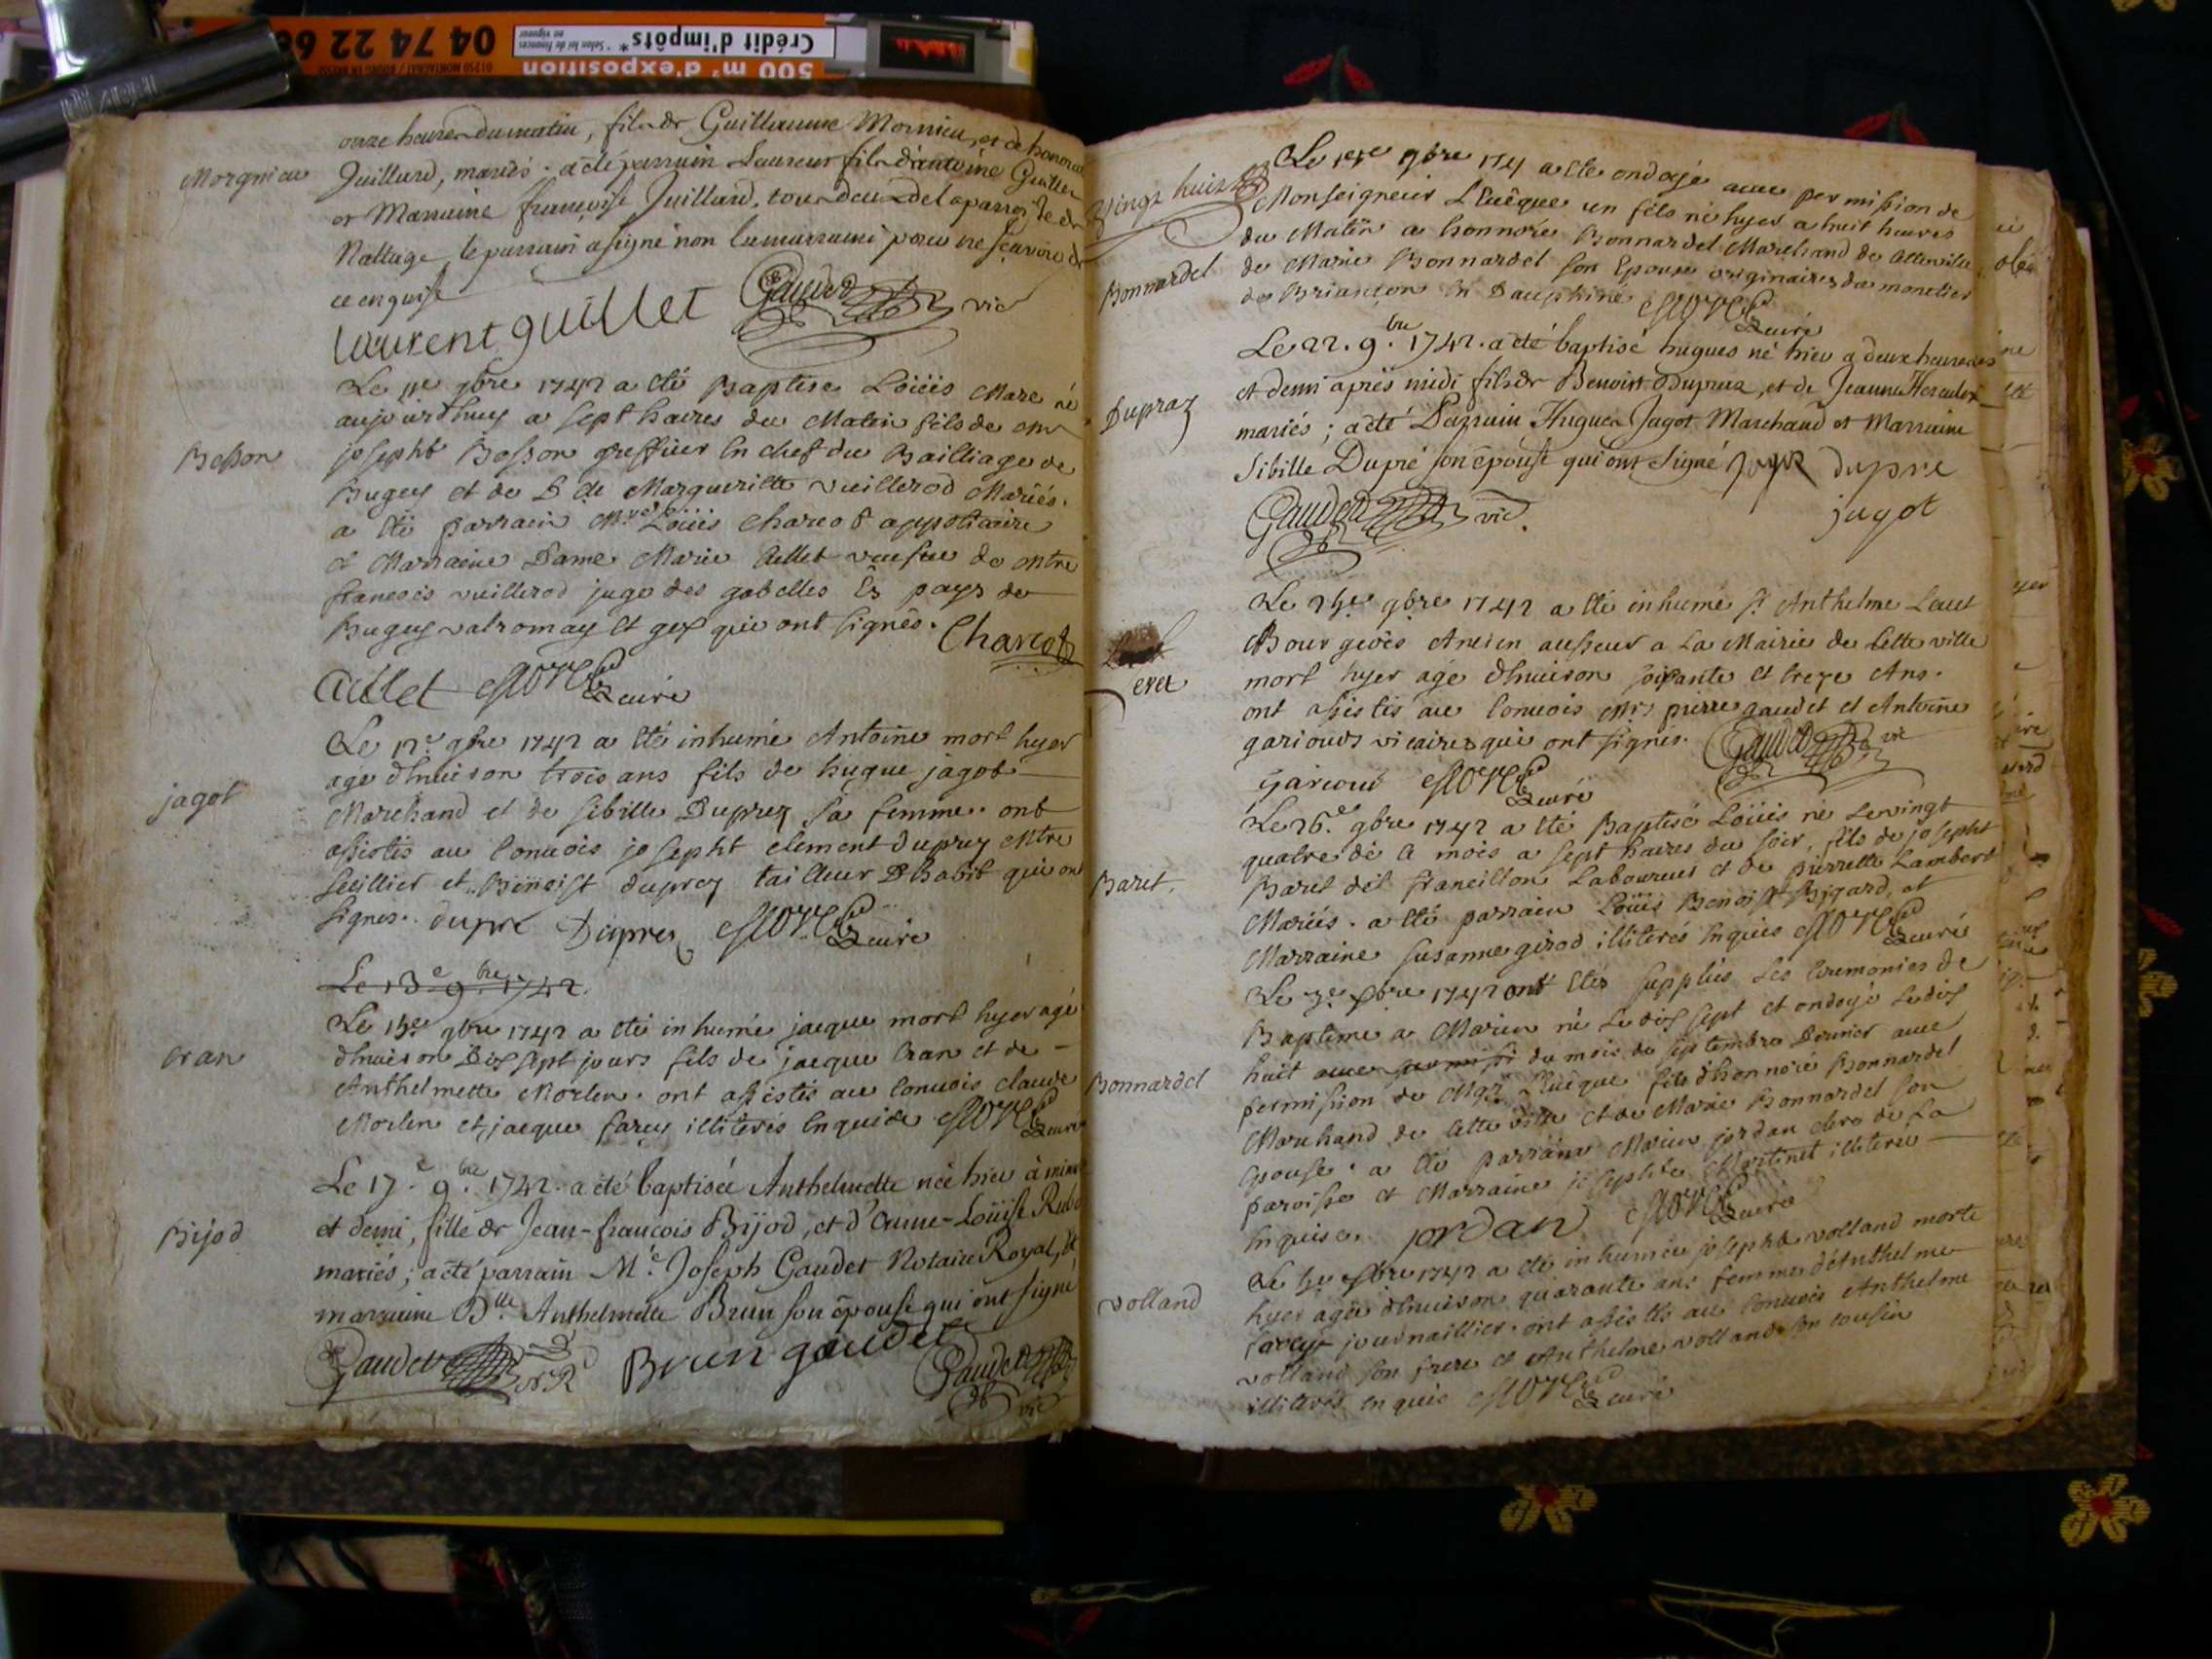 04 74 22 6
Crédit d'impôts*
* Selon loi de finances
en vigueur
01250 MONTAGNAT / BOURG EN BRESSE
500 m² d'exposition
onze heures du matin, fils de Guillaume Mornieu, et de
Morgnieu
Juillard, mariés. a été parrain Laurent fils d'antoine Guillet
et Marraine francoise Juillard, tous deux de la parroisse de
Nattage, le parrain a signé non la marraine pour ne sçavoir de
ce enquise
laurent guillet Gaudet vic
Le 9bre 1742 a été Baptise Loüis Marc né
aujourdhuy a sept haires du Matin fils de
Besson
josepht Besson greffier en chef du Bailliage de
Bugey et de D. de Marguerite vuillerod Mariés.
a été parrain Loüis charcot appoticaire
et Marraine Dame Marie Aillet veufve de
francois vuillerod juge des gabelles Es pays de
Bugey valromay et gex qui ont signés. Charcot
Aillet curé
Le 12e 9bre 1742 a été inhumé Antoine mort hyer
agé d'Environ trois ans fils de hugue jagot
jagot
Marchand et de sibille Duprez sa femme. ont
assistés au convois josepht clement duprez Mtre
seillier et Benoist duprez tailleur D habit qui ont
signes. dupré Duprez curé
Le 13e 9bre 1742.
Le 9bre 1742 a été inhumé jacque mort hyer agé
d'Environ Dix sept jours fils de jacque cran et de
cran
Anthelmette Morlin. ont assistés au convois claude
Morlin et jacque farcy illiterés enquis curé
Le 17e 9bre 1742 a été baptisée Anthelmette née hier à
et demi, fille de Jean-francois Bijod, et d'anne-Loüise
Bijod
mariés; a été parrain Me Joseph Gaudet Notaire Royal, et
marraine Dlle Anthelmette Brun son épouse qui ont signé
Gaudet NR Brun gaudet Gaudet vic
vingt huit
Le 9bre 174 a été ondoyé avec permission de
Monseigneur L'Evêque un fils né hyer a huit heures
du Matin a honnoré Bonnardel Marchand de cette ville
Bonnardel
de Marie Bonnardel son Epouse originaires du monetier
de Briançon en Dauphiné
curé
Le 22. 9bre 1742. a été baptisé hugues né hier a deux heures
et demi après midi fils de Benoist Dupraz, et de Jeanne
Dupraz
mariés; a été Parrain Hugues Jagot Marchand et Marraine
Sibille Dupré son épouse qui ont signé dupre
Gaudet vic. jagot
Le 9bre 1742 a été inhumé Sr Anthelme
Bourgeois Ancien a La Mairie de cette ville
mort hyer agé d'Environ soixante et treze Ans.
ont assistés au convois Mrs pierre gaudet et Antoine
garioud vicaires qui ont signés. Gaudet vic
garioud curé
Le 26.e 9bre 1742 a été Baptisé Loüis né Le vingt
quatre de ce mois a sept haires du soir, fils de josepht
Baret.
Baret dit francillon Laboureur et de pierrette Lambert
Mariés. a été parrain Loüis Benoist Bigard, et
Marraine susanne girod illiterés enquis curé
Le Xbre 1742 ont étés supplées Les Ceremonies de
Baptême a Marien né Le dix sept et ondoyé Le dix
huit avec permissi du mois de septembre Dernier avec
Bonnardel
permission de Mgr L'Evêque fils d'honnoré Bonnardel
Marchand de cette ville et de Marie Bonnardel son
Epouse. a été parrain Marien jordan clerc de La
paroisse et Marraine josephte Martinet illiteré
Enquise. jordan curé
Le Xbre 1742 a été inhumée josephte volland morte
hyer agée d'Environ quarante ans femme d'Anthelme
volland
farcy journaillier. ont assistés au convois Anthelme
volland son frere et Anthelme volland son cousin
illiterés enquis curé